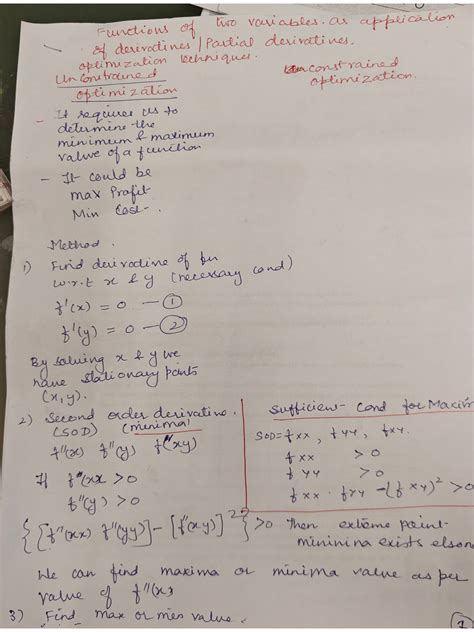 Functions of two variables as application
of derivatives / Partial derivatives.
optimization techniques.
Unconstrained
optimization
constrained
optimization.
- It requires us to
determine the
minimum & maximum
value of a function
- It could be
max Profit
Min Cost.
Method.
1) Find derivative of fn
w.r.t x & y (necessary cond)
f'(x) = 0 — ①
f'(y) = 0 — ②
By solving x & y we
have stationary points
(x, y).
2) Second order derivative.
(SOD) (minima)
f''(x) f''(y) f''(xy)
If f''(xx > 0
f''(y) > 0
{ [f''(xx) f''(yy)] - [f''(xy)]² } > 0 Then extreme point
minima exists
Sufficient Cond for Maxim
SOD = fxx, fyy, fxy.
fxx > 0
fyy > 0
fxx · fyy - (fxy)² > 0
We can find maxima or minima value as per
value of f''(x)
3) Find max or min value.